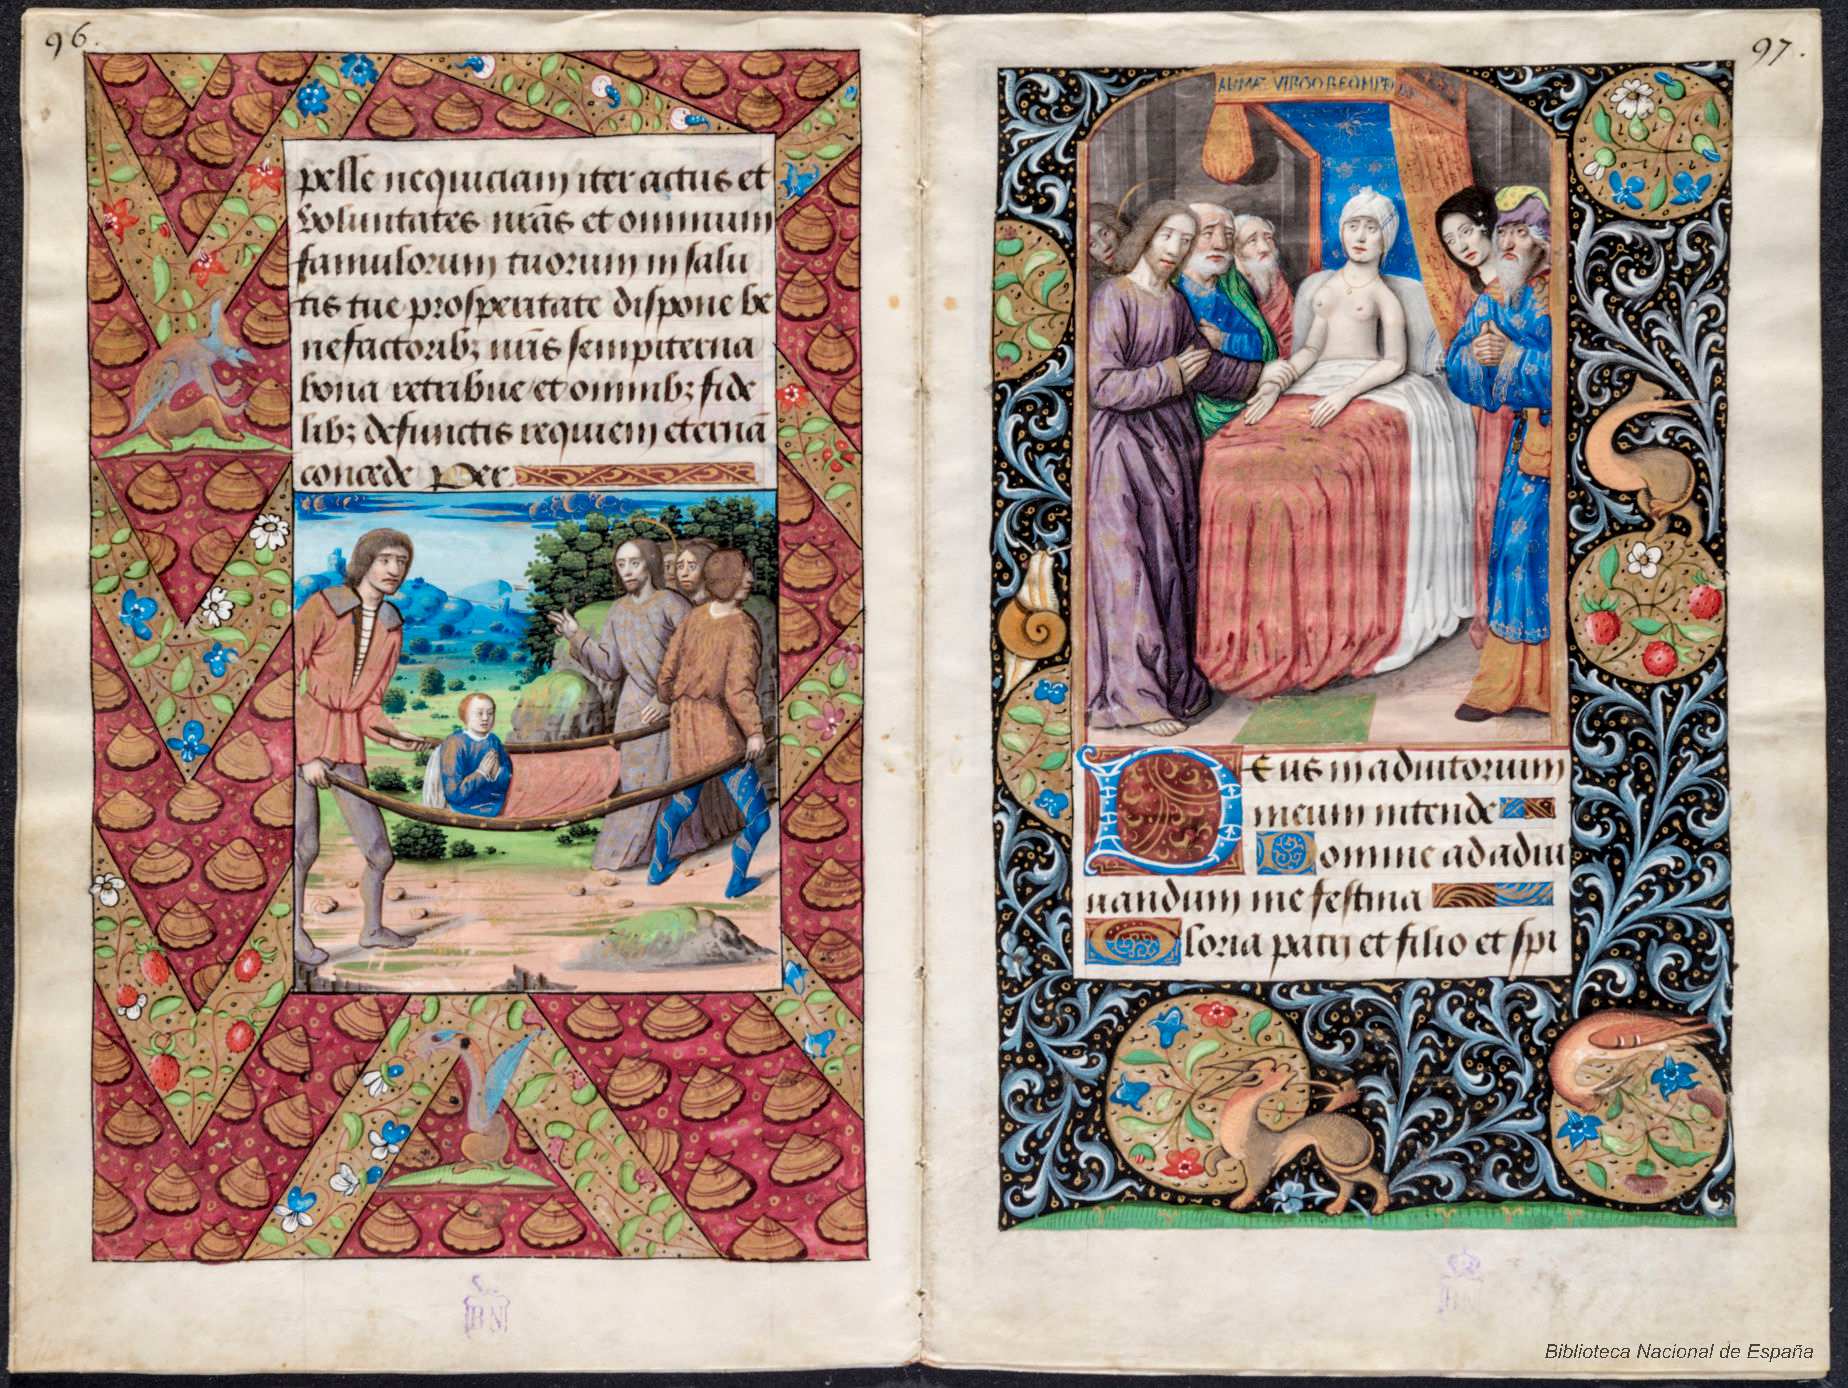 96.
pelle nequiciam iter actus et
voluntates nr̃as et omnium
famulorum tuorum in salu
tis tue prosperitate dispone be
nefactoribꝫ nr̃is sempiterna
bona retribue et omnibꝫ fide
libꝫ defunctis requiem eternã
concede Per
BN
97.
ALMA VIRGO REOMPTO
Deus in adiutorium
meum intende
Domine ad adiu
uandum me festina
Gloria patri et filio et spi
BN
Biblioteca Nacional de España